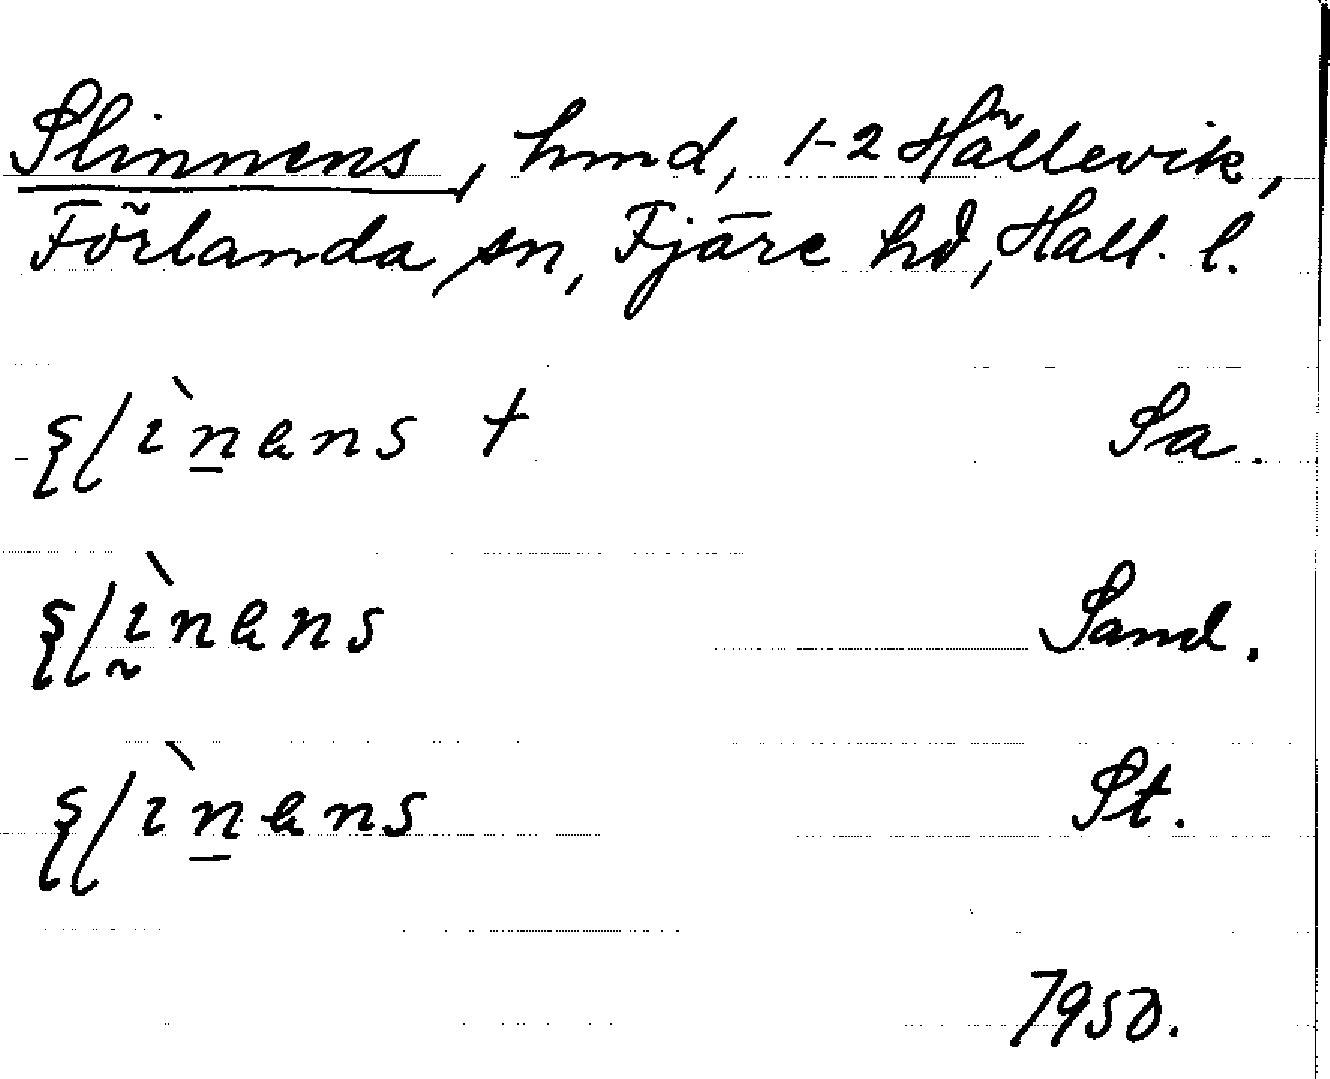 Slinnens, hmd, 1-2 Hällevik,
Förlanda sn, Fjäre hd, Hall. l.
ʂlìn̲ens † Sa.
ʂlìnens Sand.
ʂlìn̲ens St.
1950.